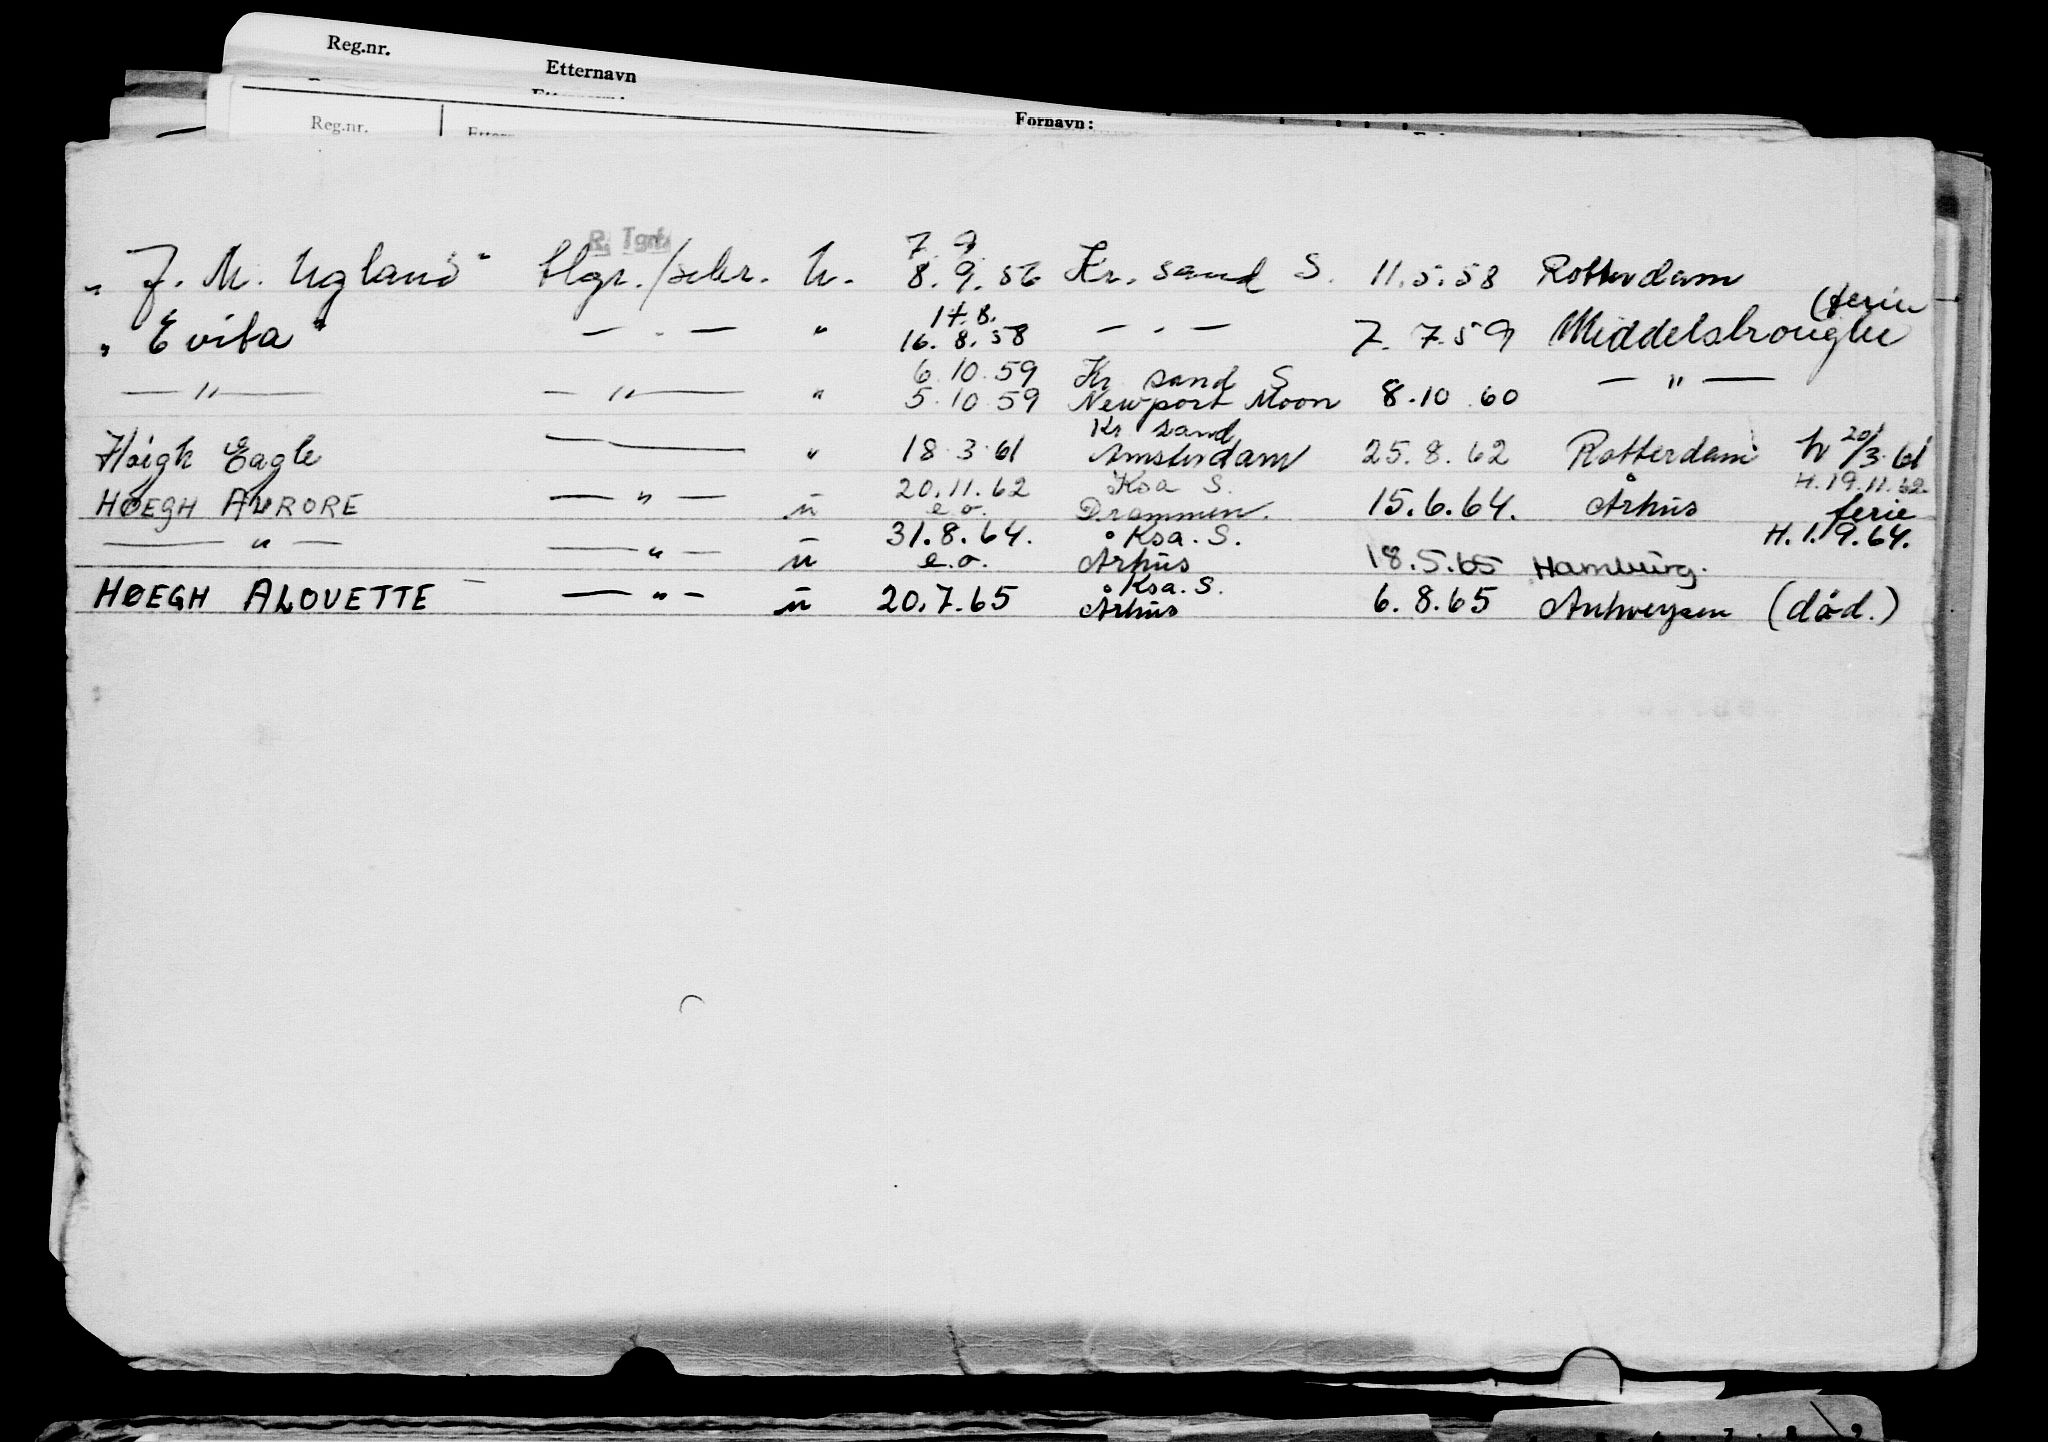 Reg.nr.
Etternavn
Fornavn:
Reg.nr.
R. Tgrf.
7. 9.
" J. M. Ugland " tlgr./sekr. U. 8. 9. 56 Kr. sand S. 11.5.58 Rotterdam
17. 8. (ferie
" Evita " — . — " 16. 8. 58 — . — 7. 7. 59 Middelsbroughe
6. 10. 59 Kr sand S
— " — — " — " 5. 10 59 Newport Moon 8.10.60 — " —
Kr sand
Høigh Eagle — " 18 3 61 Amsterdam 25.8.62 Rotterdam h 20/3 61
20.11.62 Ksa S. H.19.11.62.
HØEGH AURORE — " — u e.o. Drammen. 15.6.64. Århus ferie
31.8.64. Ksa. S. H. 1.9.64.
— " — — " — u e.o. Århus 18.5.65 Hamburg.
Ksa. S.
HØEGH ALOUETTE — " — u 20.7.65 Århus 6.8.65 Antwerpen (död.)